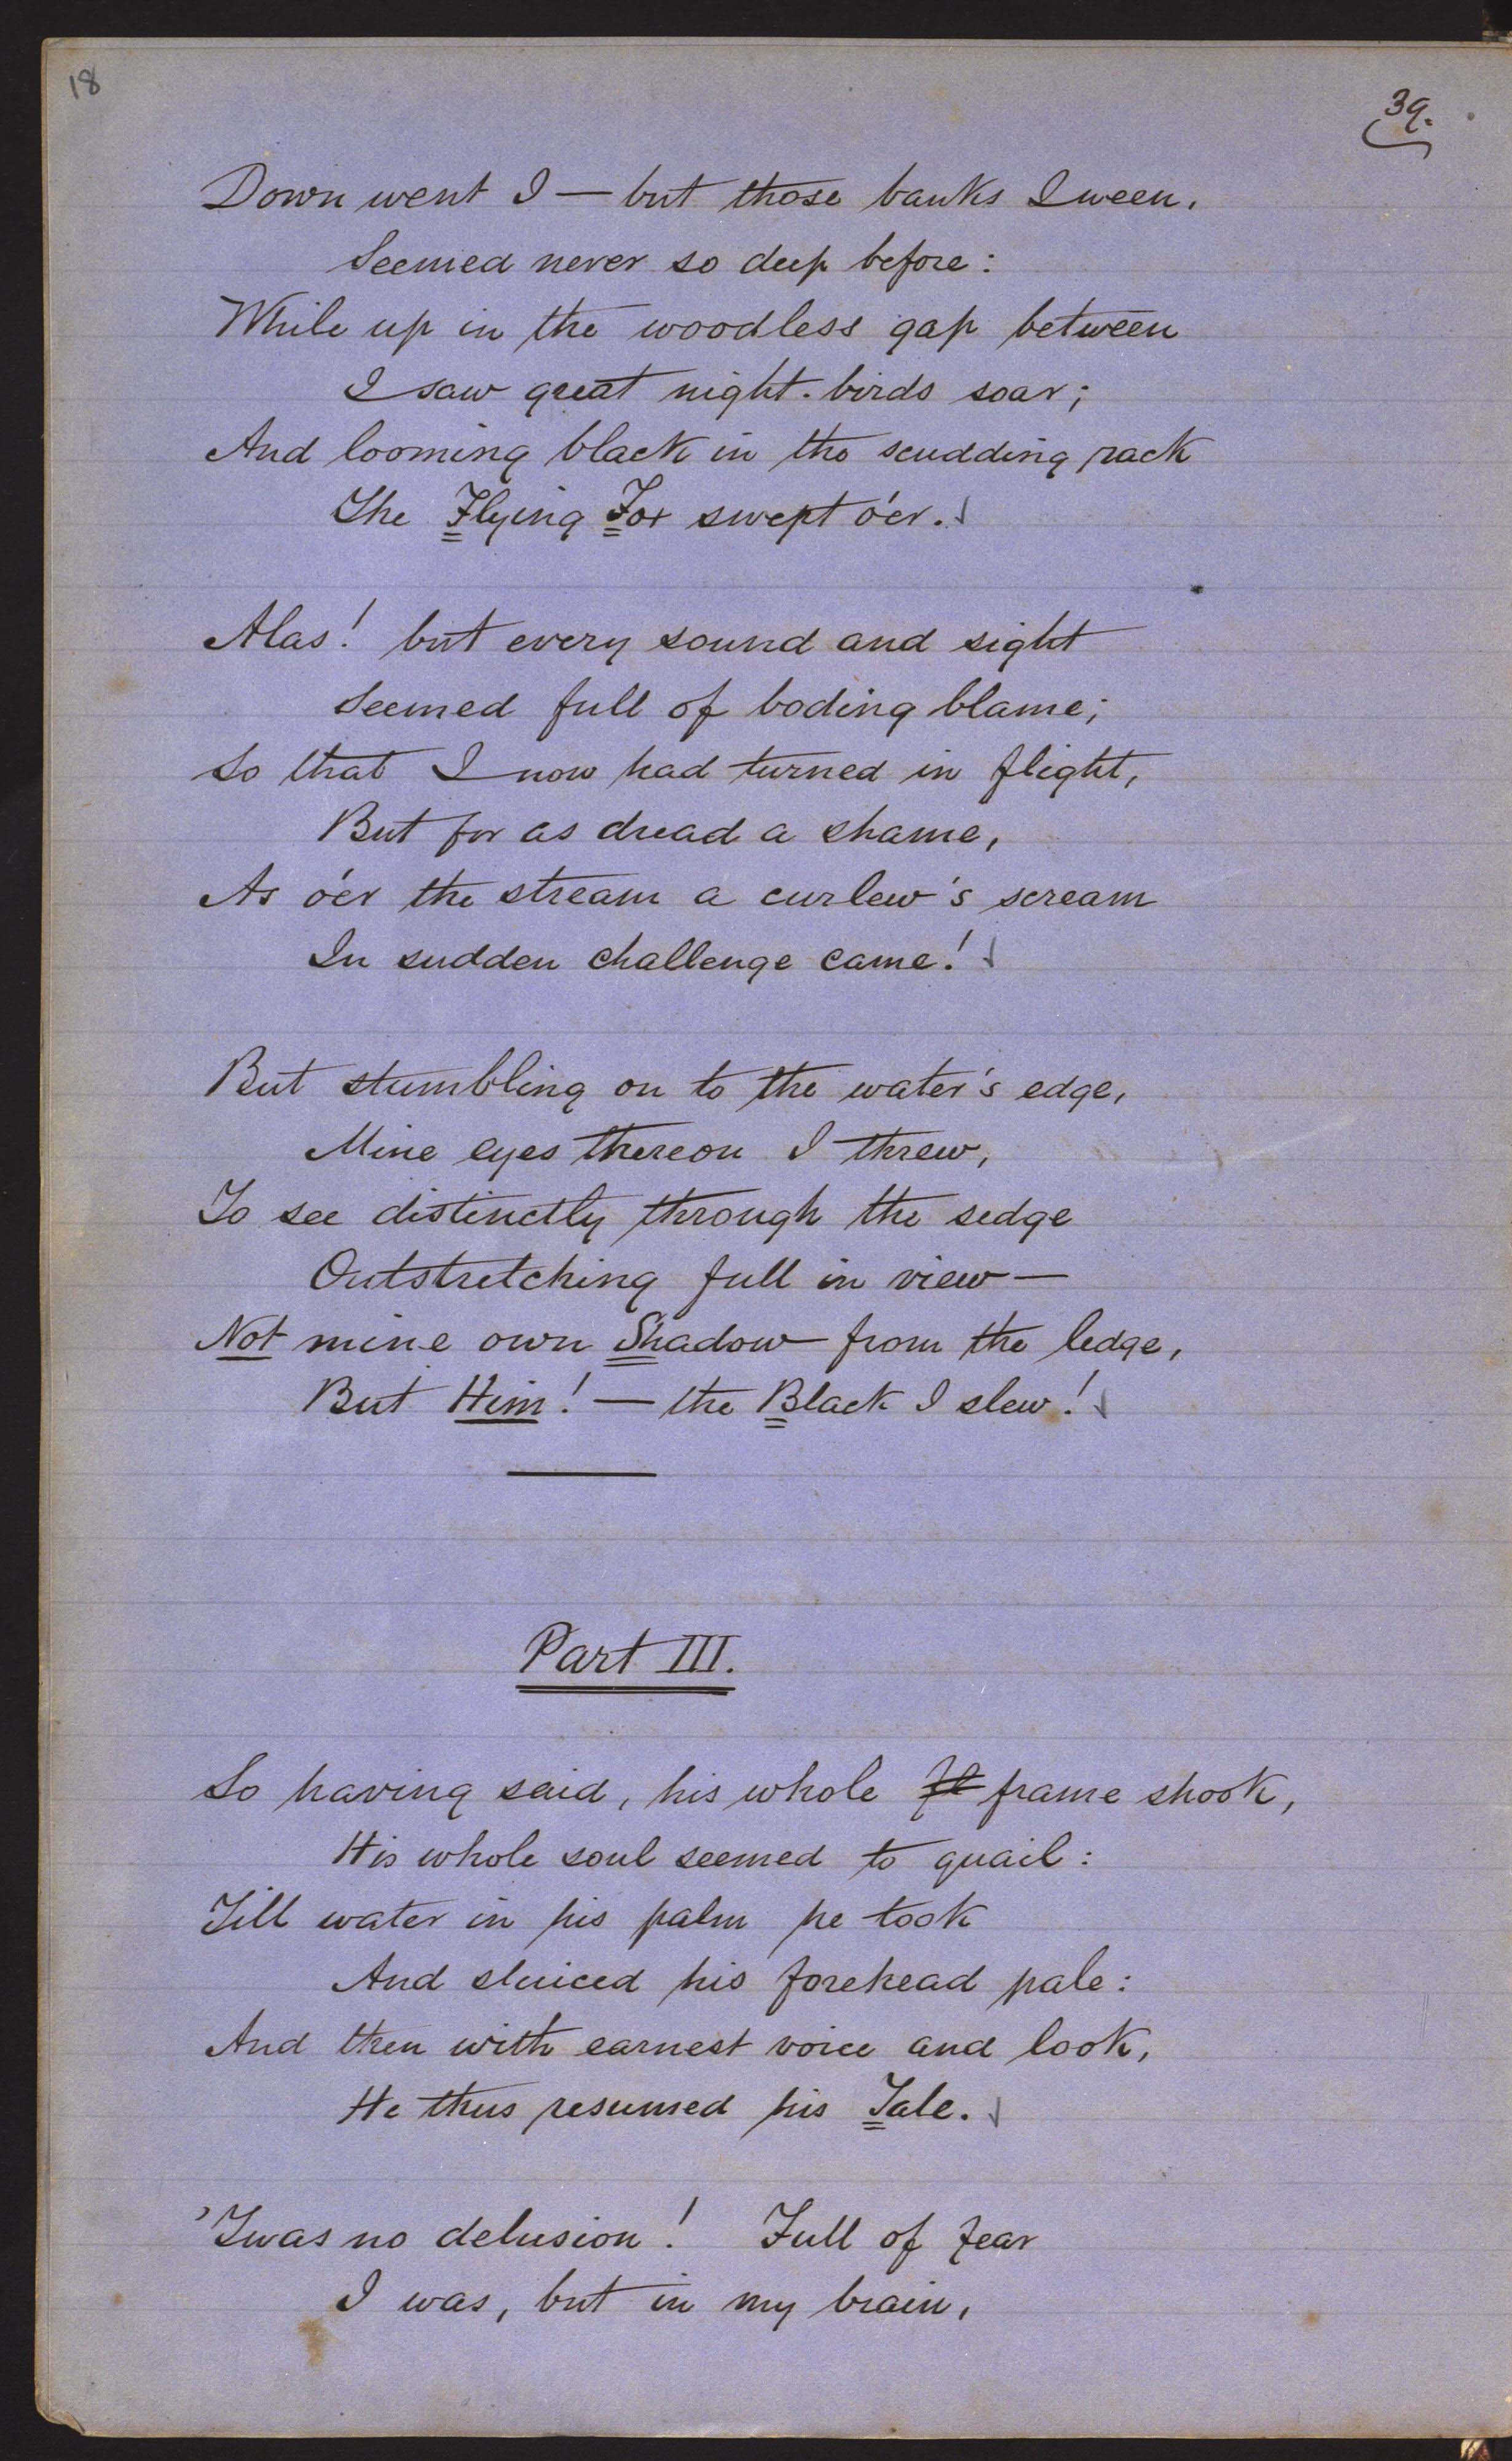 18
39.
Down went I — but those banks I ween,
Seemed never so deep before:
While up in the woodless gap between
I saw great night-birds soar;
And looming black in the scudding rack
The Flying Fox swept o'er.
Alas! but every sound and sight
Seemed full of boding blame;
So that I now had turned in flight,
But for as dread a shame,
As o'er the stream a curlew's scream
In sudden challenge came!
But stumbling on to the water's edge,
Mine eyes thereon I threw,
To see distinctly through the sedge
Outstretching full in view —
Not mine own Shadow from the ledge,
But Him! — the Black I slew!
Part III.
So having said, his whole frame shook,
His whole soul seemed to quail:
Till water in his palm he took
And sluiced his forehead pale:
And then with earnest voice and look,
He thus resumed his Tale.
'Twas no delusion! Full of fear
I was, but in my brain,